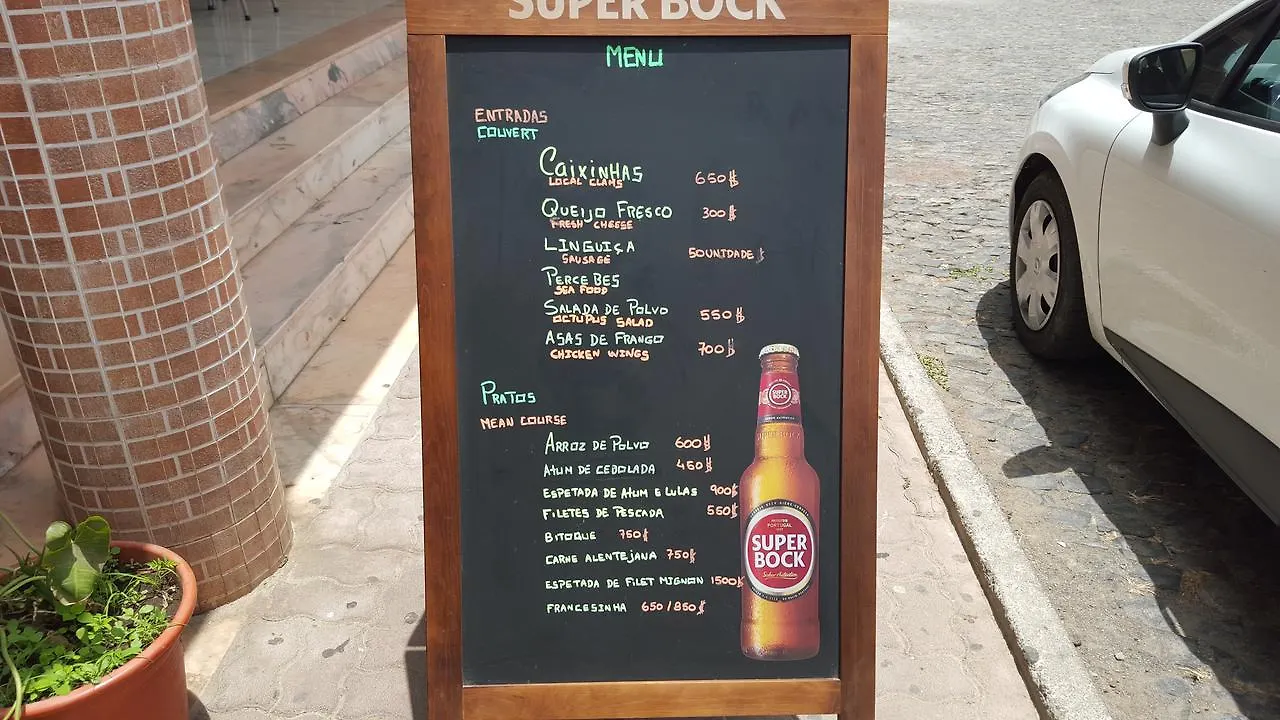 SUPER BOCK
MENU
ENTRADAS
COUVERT
CAIXINHAS 650$
LOCAL CLAMS
QUEIJO FRESCO 300$
FRESH CHEESE
LINGUIÇA 50UNIDADE$
SAUSAGE
PERCEBES
SEA FOOD
SALADA DE POLVO 550$
OCTUPUS SALAD
ASAS DE FRANGO 700$
CHICKEN WINGS
PRATOS
MEAN COURSE
ARROZ DE POLVO 600$
ATUM DE CEBOLADA 450$
ESPETADA DE ATUM E LULAS 900$
FILETES DE PESCADA 550$
BITOQUE 750$
CARNE ALENTEJANA 750$
ESPETADA DE FILET MIGNON 1500$
FRANCESINHA 650/850$
SUPER
BOCK
SUPER BOCK
PORTUGAL
SUPER
BOCK
Sabor Autêntico